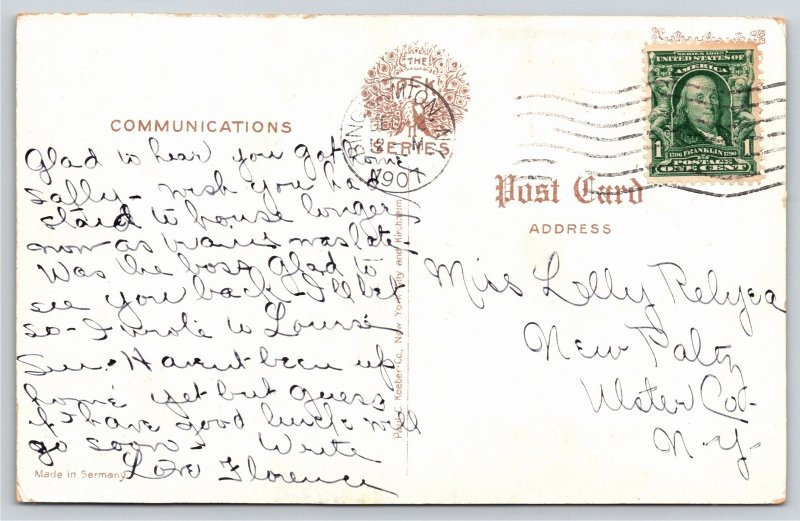 THE
PEK
SERIES
BINGHAMTON N.Y.
1907
SERIES 1902
UNITED STATES OF
AMERICA
1 1
1706 FRANKLIN 1790
POSTAGE
ONE CENT
COMMUNICATIONS
Post Card
ADDRESS
Glad to hear you got home
safly - wish you had
staid to house longer
now as trains was late -
Was the boss glad to
see you back - I'll bet
so - I wrote to Louise
Sun. Havent been up
home yet but guess
if I have good luck will
go soon - Write
Love Florence
Miss Lolly Relyea
New Paltz
Ulster Co.
N.Y.
Paul C. Koeber Co., New York City and Kirchheim,
Made in Germany